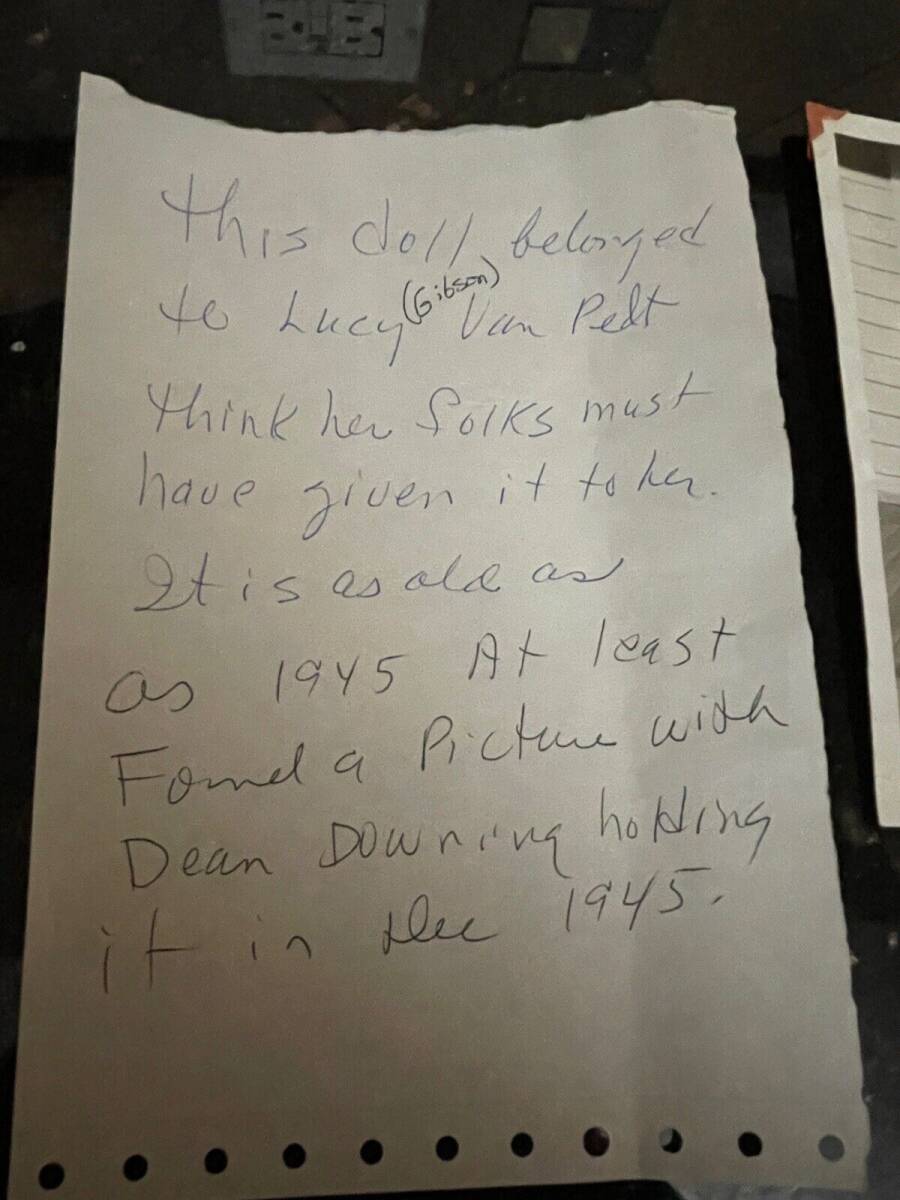 This doll belonged
to Lucy (Gibson) Van Pelt
Think her folks must
have given it to her.
It is as old as
as 1945 At least
Found a Picture with
Dean Downing holding
it in Dec 1945.